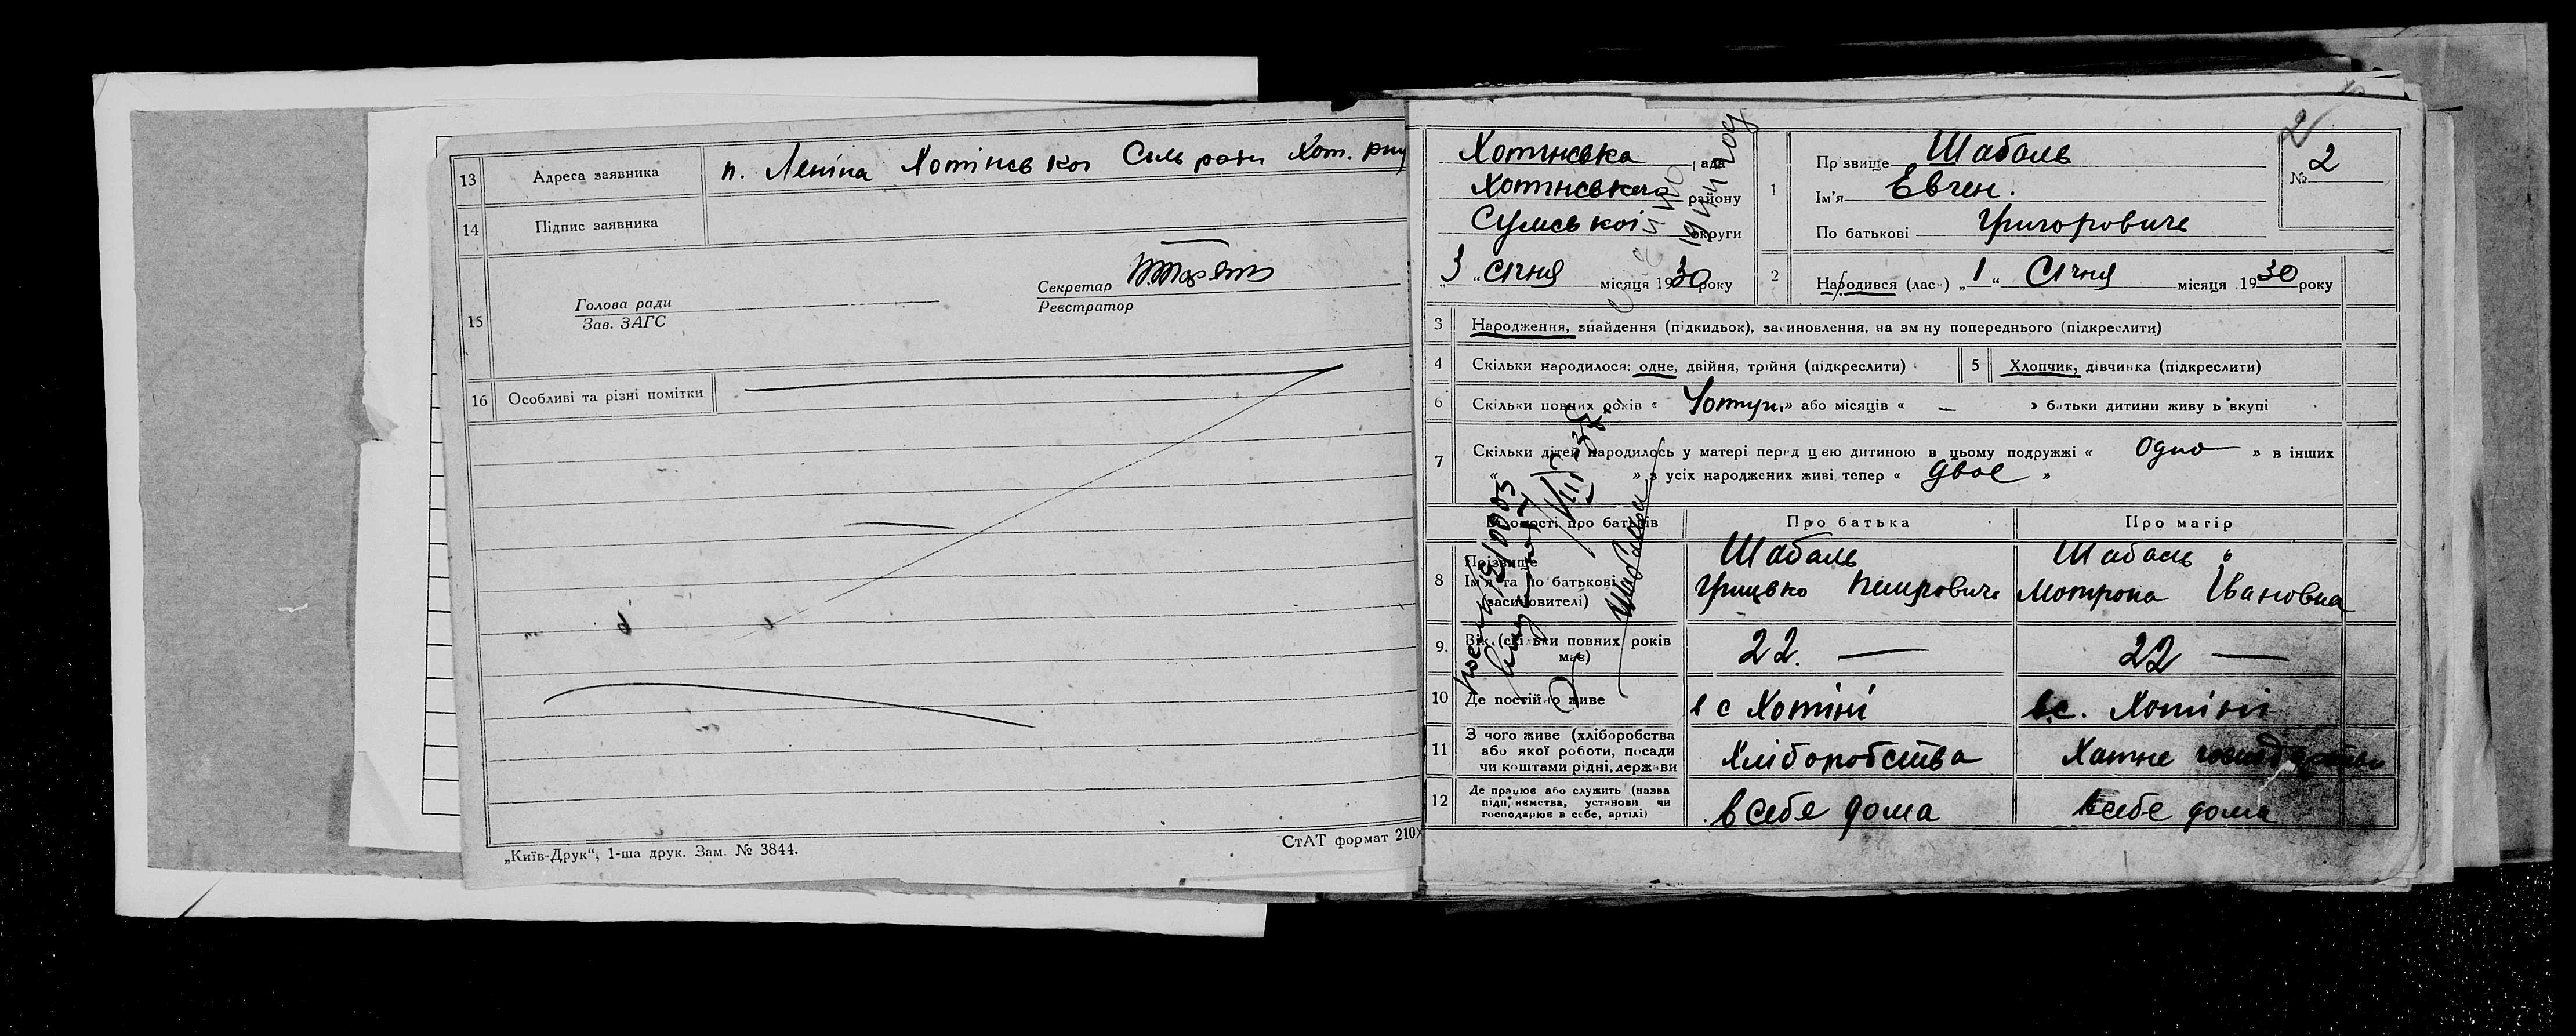 13 Адреса заявника п. Леніна Хотінської Сільради Хот. р-ну
14 Підпис заявника
15 Голова ради
Зав. ЗАГС
Секретар
Реєстратор
16 Особливі та різні помітки
„Київ-Друк“, 1-ша друк. Зам. № 3844.
СтАТ формат 210×
2
Хотінська рада
Хотінського району
Сумської округи
3 „ січня місяця 1930 року
1 Прізвище Шабаль
Ім'я Евген.
По батькові Григоровичь
№ 2
2 Народився (лась) „ 1 “ Січня місяця 1930 року
3 Народження, знайдення (підкидьок), засиновлення, на зміну попереднього (підкреслити)
4 Скільки народилося: одне, двійня, трійня (підкреслити)
5 Хлопчик, дівчинка (підкреслити)
6 Скільки повних років « Чотири » або місяців « — » батьки дитини живуть вкупі
7 Скільки дітей народилось у матері перед цією дитиною в цьому подружжі « Одно » в інших
« » з усіх народжених живі тепер « двоє »
Відомості про батьків Про батька Про матір
8 Прізвище Шабаль Шабаль
Ім'я та по батькові Грицько Петровичь Мотрона Івановна
(засиновителі)
9. Вік (скільки повних років має) 22. — 22 —
10 Де постійно живе в с Хотіні в с. Хотіні
11 З чого живе (хліборобства
або якої роботи, посади
чи коштами рідні, держави Хліборобства Хатнє господарство
12 Де працює або служить (назва
підприємства, установи чи
господарює в себе, артілі) в себе дома в себе дома